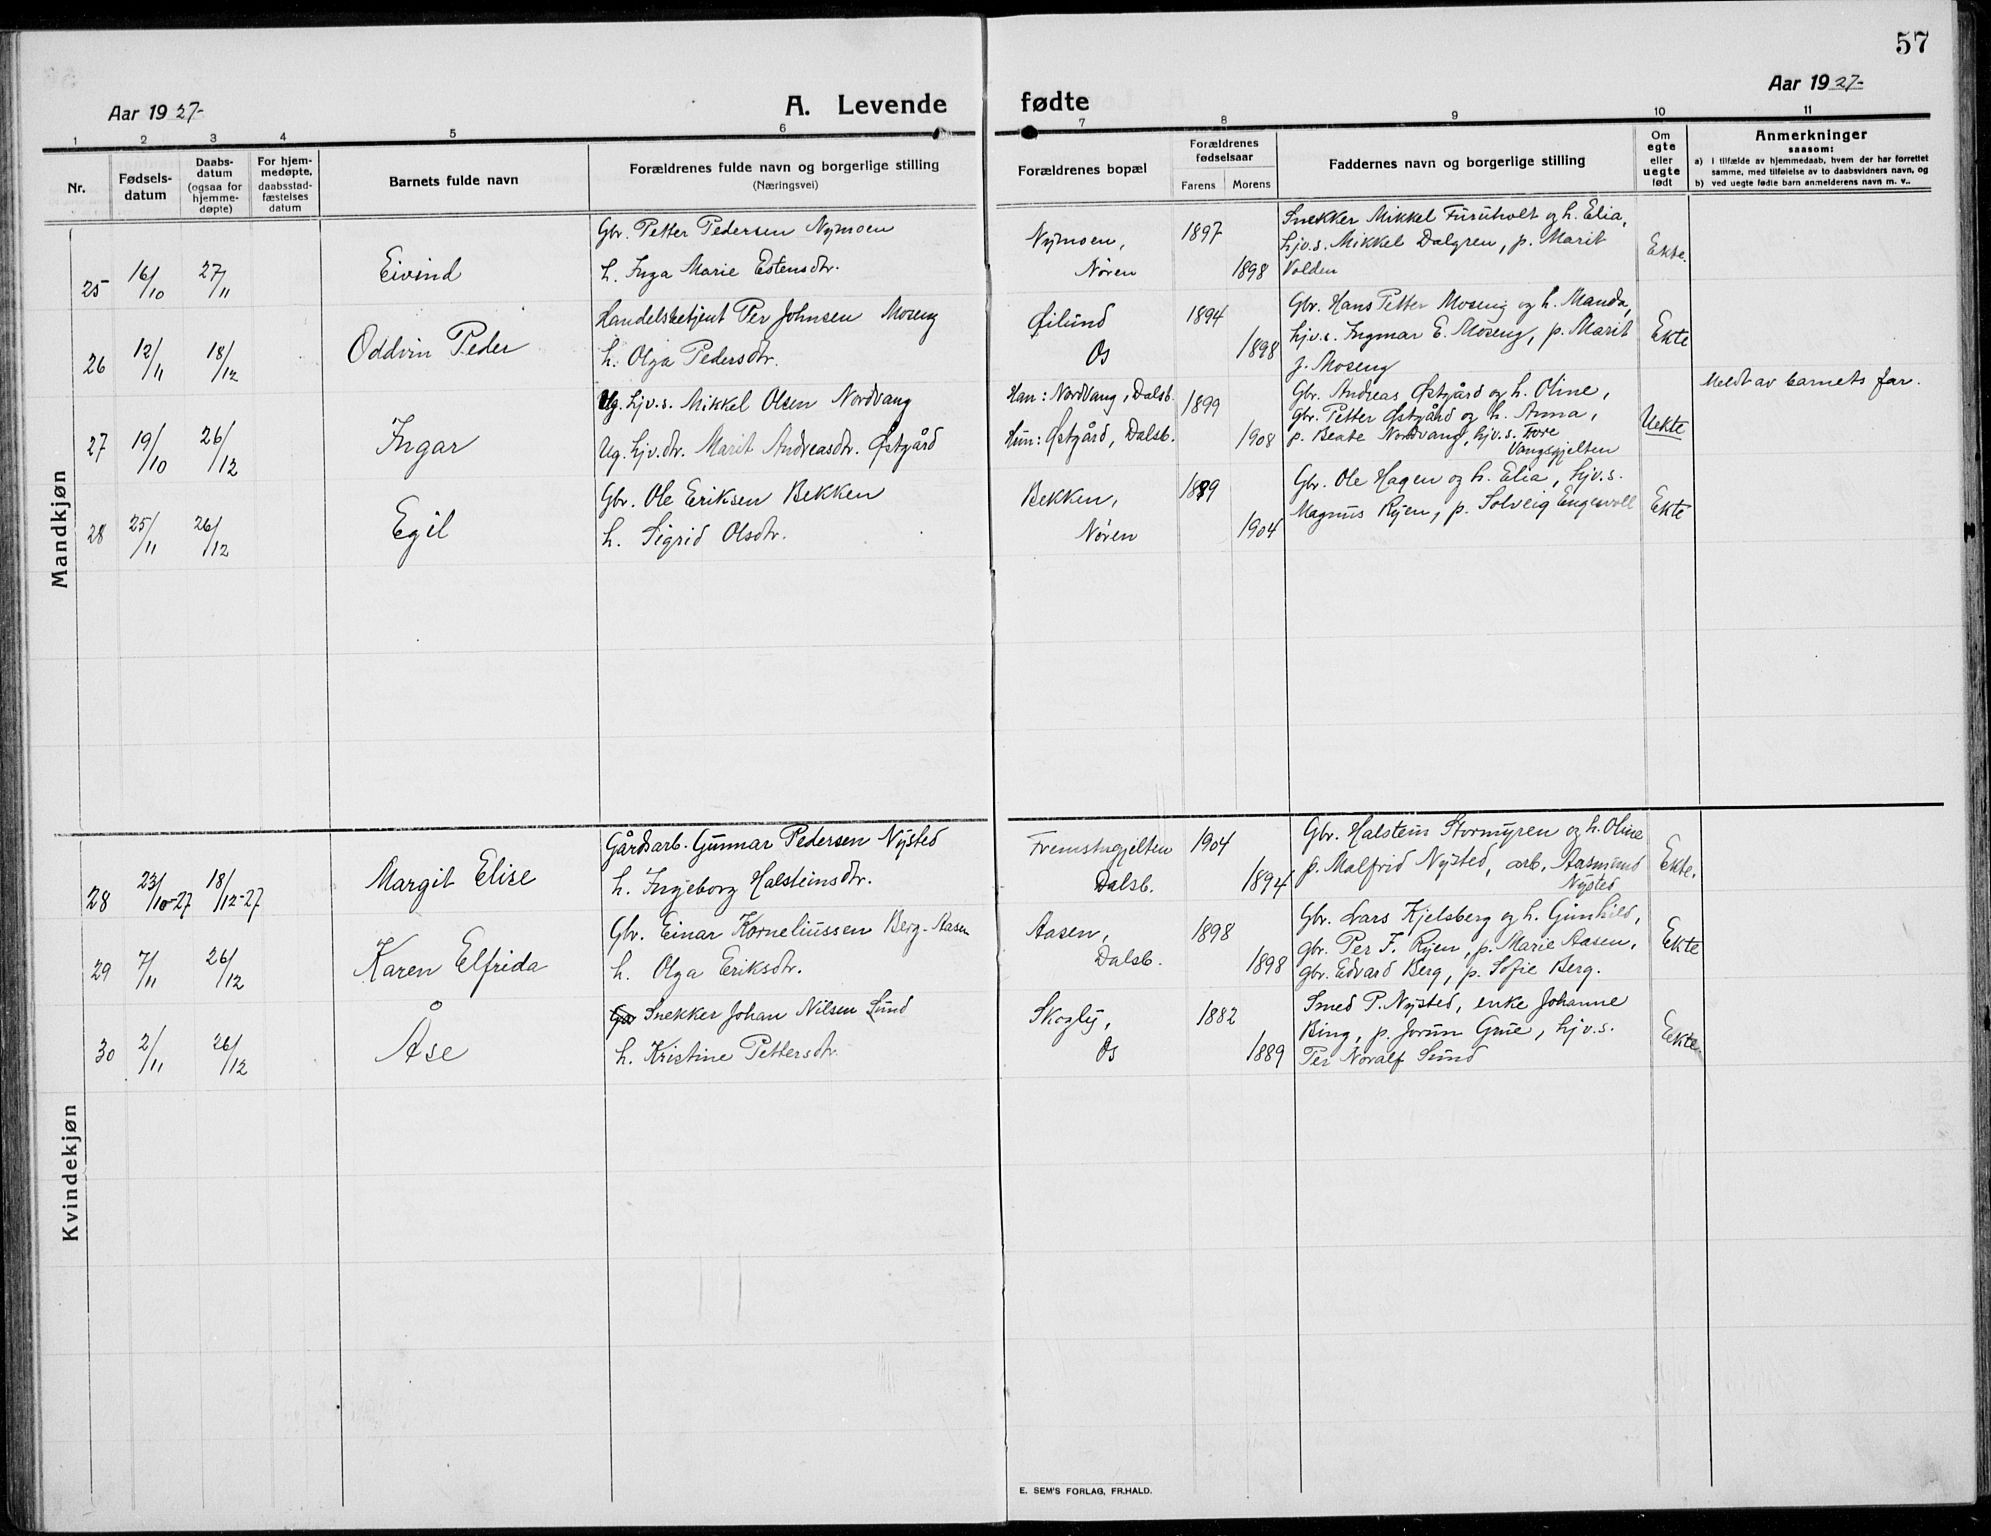 57
Aar 1927-
A. Levende fødte
Aar 1927-
1 2 3 4 5 6 7 8 9 10 11
Nr.
Fødsels-
datum
Daabs-
datum
(ogsaa for
hjemme-
døpte)
For hjem-
medøpte,
daabsstad-
fæstelses
datum
Barnets fulde navn
Forældrenes fulde navn og borgerlige stilling
(Næringsvei)
Forældrenes bopæl
Forældrenes
fødselsaar
Farens Morens
Faddernes navn og borgerlige stilling
Om
egte
eller
uegte
født
Anmerkninger
saasom:
a) I tilfælde av hjemmedaab, hvem der har forrettet
samme, med tilføielse av to daabsvidners navn, og
b) ved uegte fødte barn anmelderens navn m. v..
Mandkjøn
25 16/10 27/11
Eivind
Gbr. Petter Pedersen Nymoen
h. Inga Marie Estensdtr.
Nymoen,
Nøren
1897
1898
Snekker Mikkel Furuholt og h. Elia,
hjv.s. Mikkel Dalgren, p. Marit
Volden
Ekte.
26 12/11 18/12
Oddvin Peder
Handelsbetjent Per Johnsen Moseng
h. Olga Pedersdtr.
Øilund
Os
1894
1898
Gbr. Hans Petter Moseng og h. Manda,
hjv.s. Ingmar E. Moseng, p. Marit
J. Moseng
Ekte
27 19/10 26/12
Ingar
Ug. hjv.s. Mikkel Olsen Nordvang
Ug. hjv.dtr. Marit Andreasdtr. Østgård
Han: Nordvang, Dalsb.
Hun: Østgård, Dalsb.
1899
1908
Gbr. Andreas Østgård og h. Oline,
gbr. Petter Østgård og h. Anna,
p. Beate Nordvang, hjv.s. Tore
Vangsgjelten
Uekte
Meldt av barnets far.
28 25/11 26/12
Egil
Gbr. Ole Eriksen Bekken
h. Sigrid Olsdtr.
Bekken,
Nøren
1889
1904
Gbr. Ole Hagen og h. Elia, hjv.s.
Magnus Ryen, p. Solveig Engenvoll
Ekte
Kvindekjøn
28 23/10-27 18/12-27
Margit Elise
Gårdsarb. Gunnar Pedersen Nysted
h. Ingeborg Halsteinsdtr.
Fremstugjelten
Dalsb.
1904
1894
Gbr. Halstein Stormyren og h. Oline
p. Malfrid Nysted, arb. Aasmund
Nysted
Ekte.
29 7/11 26/12
Karen Elfrida
Gbr. Einar Korneliussen Berg-Aasen
h. Olga Eriksdtr.
Aasen,
Dalsb.
1898
1898
Gbr. Lars Kjelsberg og h. Gunhild,
gbr. Per F. Ryen, p. Marie Aasen,
gbr. Edvard Berg, p. Sofie Berg.
Ekte
30 2/11 26/12
Åse
Snekker Johan Nilsen Sund
h. Kristine Pettersdtr.
Skogly,
Os
1882
1889
Smed P. Nysted, enke Johanne
Bing, p. Jorun Grue, hjv.s.
Per Noralf Sund
Eekte
E. SEM'S FORLAG, FR.HALD.